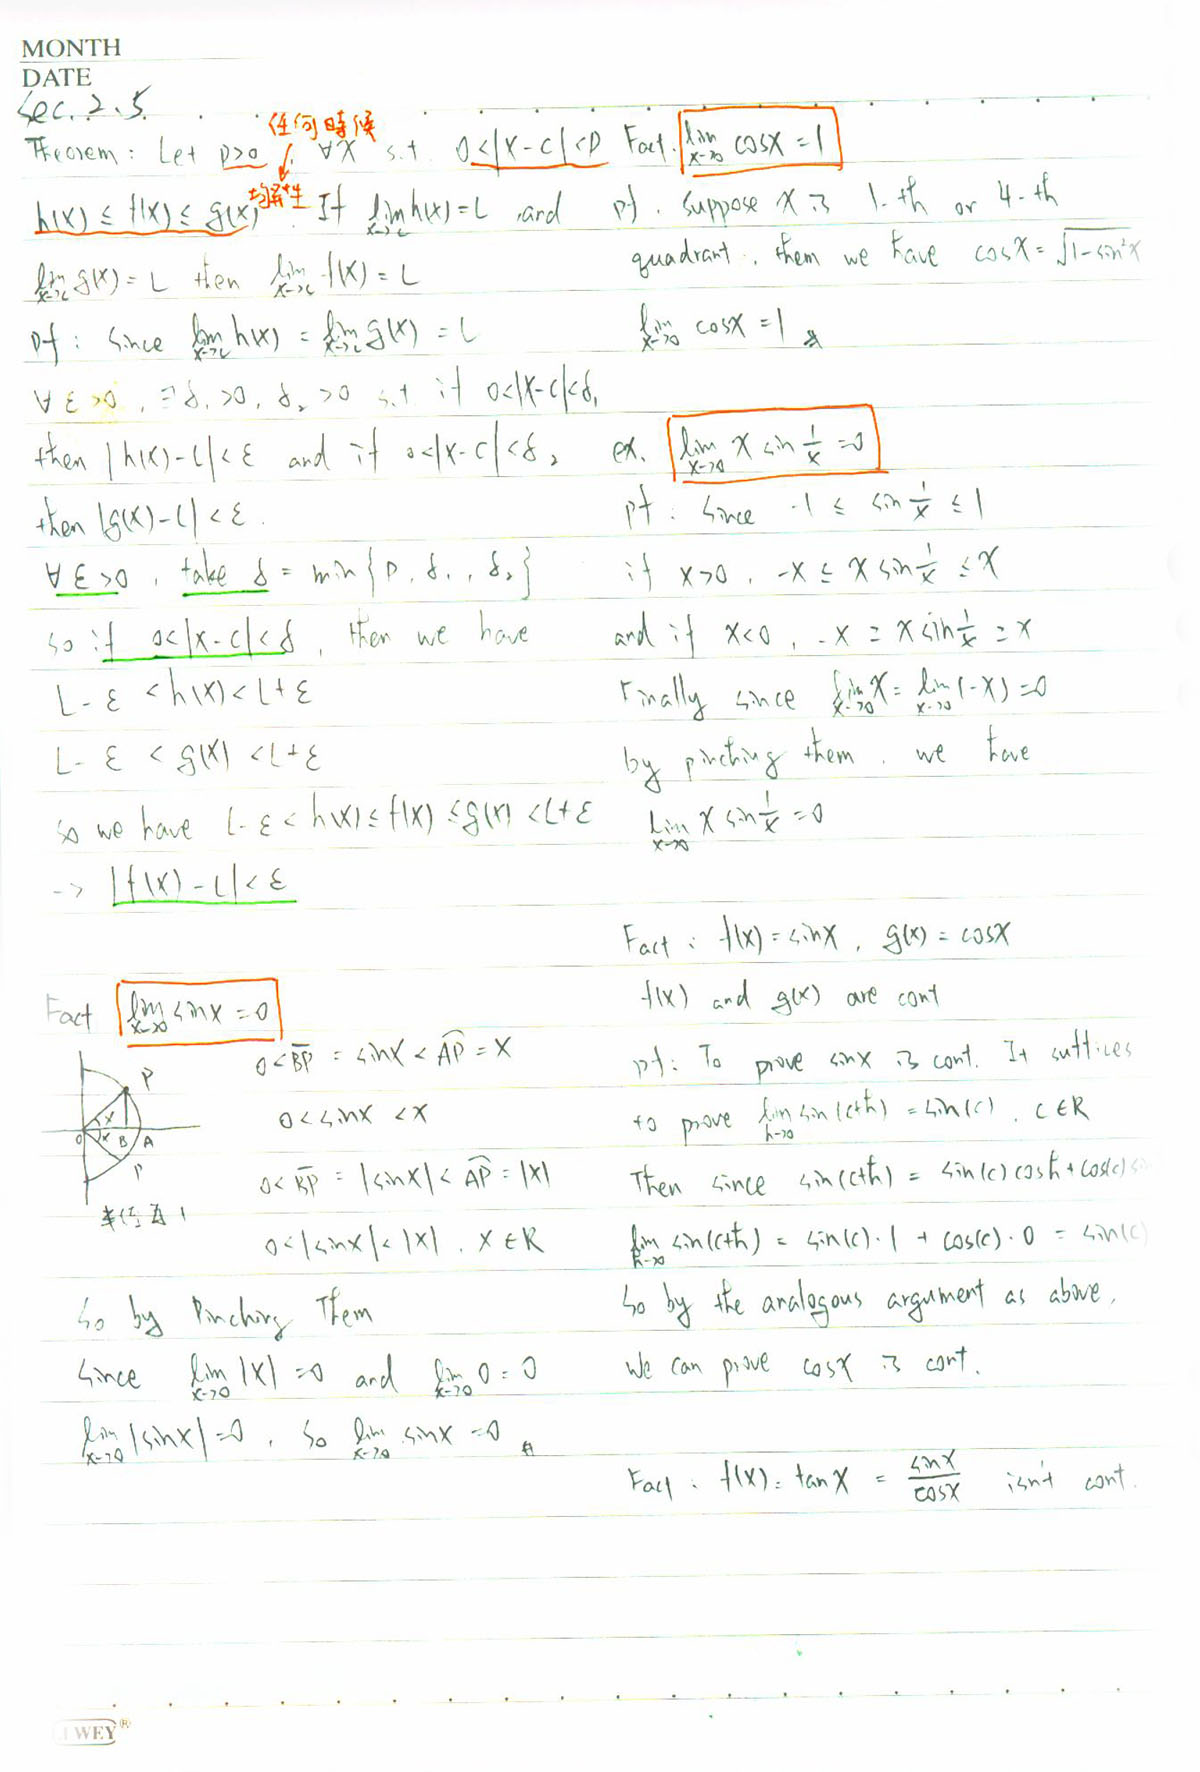 MONTH
DATE
Sec. 2.5.
任何時候
Theorem : Let p>0 , ∀x s.t. 0<|x-c|<p
均發生
h(x) ≤ f(x) ≤ g(x) . If lim x→c h(x) = L and
lim x→c g(x) = L then lim x→c f(x) = L
pf : Since lim x→c h(x) = lim x→c g(x) = L
∀ε>0 , ∃δ₁>0, δ₂>0 s.t if 0<|x-c|<δ₁
then |h(x)-L|<ε and if 0<|x-c|<δ₂
then |g(x)-L|<ε.
∀ε>0 , take δ = min{p, δ₁, δ₂}
so if 0<|x-c|<δ , then we have
L-ε < h(x) < L+ε
L-ε < g(x) < L+ε
so we have L-ε < h(x) ≤ f(x) ≤ g(x) < L+ε
-> |f(x)-L|<ε
Fact lim x→0 sinx = 0
P
x
O x B A
P
半徑為 1
0 < B̅P̅ = sinx < A͡P = x
0 < sinx < x
0 < B̅P̅ = |sinx| < A͡P = |x|
0 < |sinx| < |x| , x ∈ R
So by Pinching Them
Since lim x→0 |x| = 0 and lim x→0 0 = 0
lim x→0 |sinx| = 0 , So lim x→0 sinx = 0
Fact. lim x→0 cosx = 1
pf . Suppose x is 1-th or 4-th
quadrant , them we have cosx = √1-sin²x
lim x→0 cosx = 1
ex. lim x→0 x sin 1/x = 0
pf : Since -1 ≤ sin 1/x ≤ 1
if x>0 , -x ≤ x sin 1/x ≤ x
and if x<0 , -x ≥ x sin 1/x ≥ x
Finally since lim x→0 x = lim x→0 (-x) = 0
by pinching them , we have
lim x→0 x sin 1/x = 0
Fact : f(x) = sinx , g(x) = cosx
f(x) and g(x) are cont
pf : To prove sinx is cont. It suffices
to prove lim h→0 sin(c+h) = sin(c) , c ∈ R
Then since sin(c+h) = sin(c) cosh + cos(c) si
lim h→0 sin(c+h) = sin(c)·1 + cos(c)·0 = sin(c)
So by the analogous argument as above,
We can prove cosx is cont.
Fact : f(x) = tanx = sinx/cosx isn't cont.
WEY®